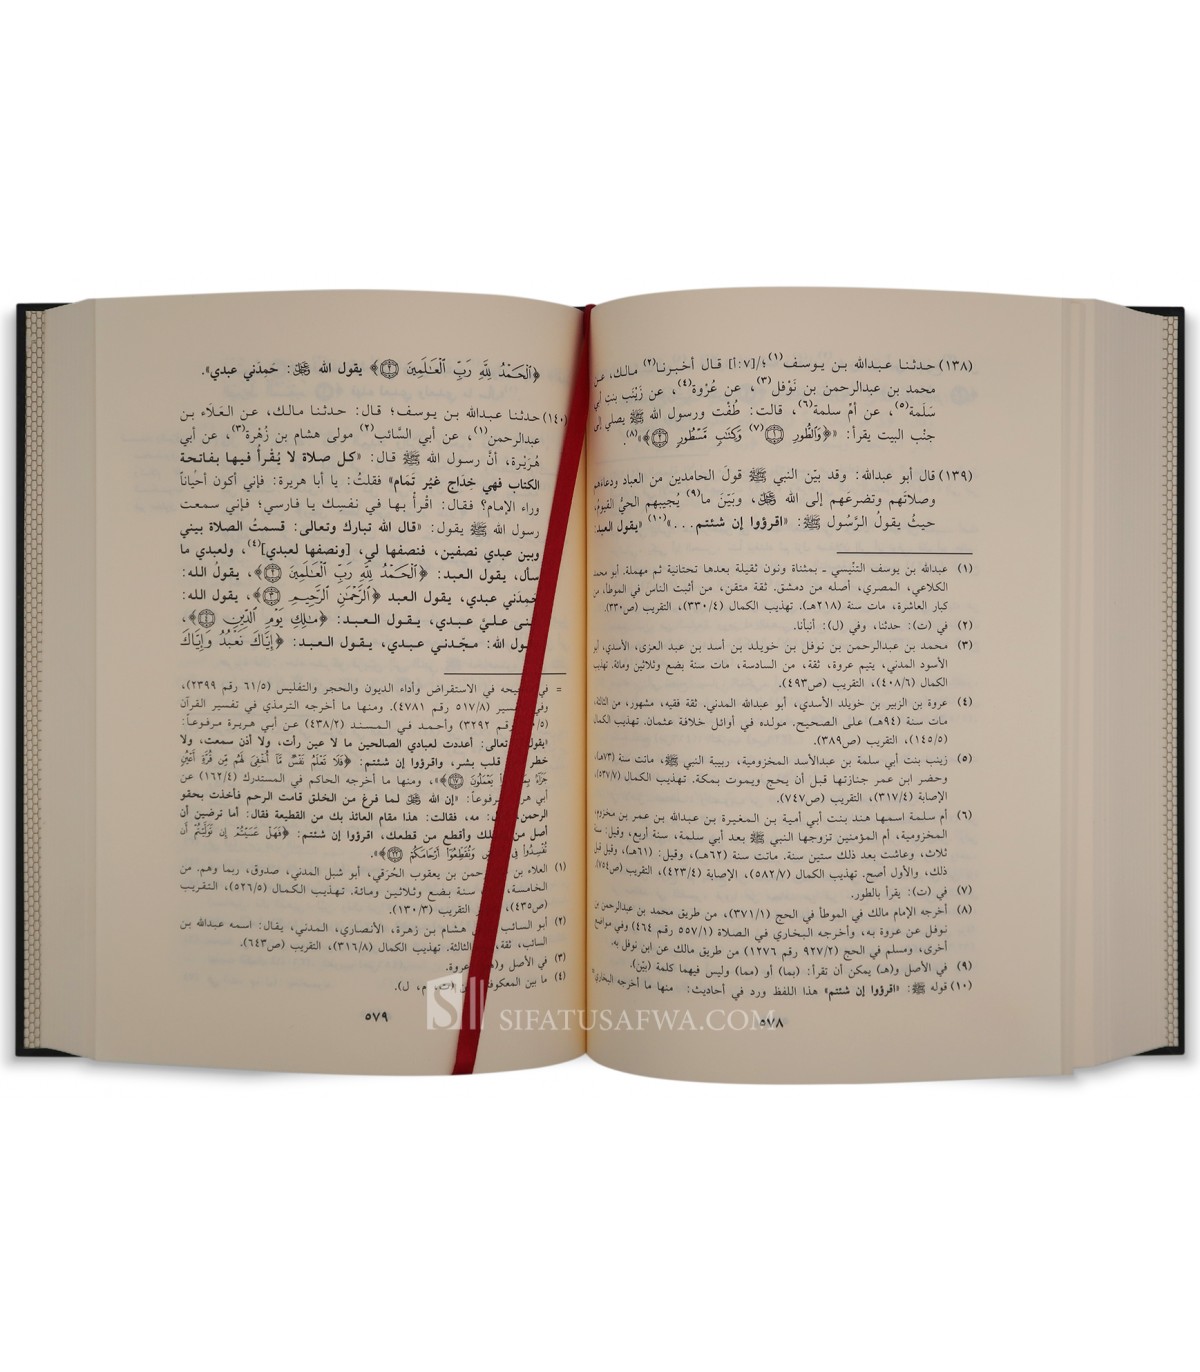 (١٣٨) حدثنا عبدالله بن يوسف(١)؛/[٧:أ] قال أخبرنا(٢) مالك، عن
محمد بن عبدالرحمن بن نَوْفل(٣)، عن عُرْوة(٤)، عن زَيْنَب بنتِ أبي
سَلَمة(٥)، عن أمِّ سلمة(٦)، قالت: طُفْت ورسول الله ﷺ يصلي إلى
جنْب البيت يقرأ: «﴿وَالطُّورِ ۝١(٧) وَكِتَابٍ مَّسْطُورٍ ۝٢﴾»(٨).
(١٣٩) قال أبو عبدالله: وقد بيّن النبي ﷺ قولَ الحامدين من العباد ودعاءهم
وصلاتَهم وتضرعَهم إلى الله ﷻ، وبَيّنَ ما(٩) يُجيبهم الحيُّ القيومُ،
حيثُ يقولُ الرَّسُول ﷺ: «اقرؤوا إن شئتم...»(١٠) «يقول العبد:
(١) عبدالله بن يوسف التنّيسي ـ بمثناة ونون ثقيلة بعدها تحتانية ثم مهملة. أبو محمد
الكلاعي، المصري، أصله من دمشق. ثقة متقن، من أثبت الناس في الموطأ، من
كبار العاشرة، مات سنة (٢١٨هـ). تهذيب الكمال (٣٣٠/٤)، التقريب (ص٣٣٠).
(٢) في (ت): حدثنا، وفي (ل): أنبأنا.
(٣) محمد بن عبدالرحمن بن نوفل بن خويلد بن أسد بن عبد العزى، الأسدي، أبو
الأسود المدني، يتيم عروة، ثقة، من السادسة، مات سنة بضع وثلاثين ومائة. تهذيب
الكمال (٤٠٨/٦)، التقريب (ص٤٩٣).
(٤) عروة بن الزبير بن خويلد الأسدي، أبو عبدالله المدني. ثقة فقيه، مشهور، من الثالثة،
مات سنة (٩٤هـ) على الصحيح. مولده في أوائل خلافة عثمان. تهذيب الكمال
(١٤٥/٥)، التقريب (ص٣٨٩).
(٥) زينب بنت أبي سلمة بن عبدالأسد المخزومية، ربيبة النبي ﷺ، ماتت سنة (٧٣هـ)،
وحضر ابن عمر جنازتها قبل أن يحج ويموت بمكة. تهذيب الكمال (٥٣٧/٧)،
الإصابة (٣١٧/٤)، التقريب (ص٧٤٧).
(٦) أم سلمة اسمها هند بنت أبي أمية بن المغيرة بن عبدالله بن عمر بن مخزوم،
المخزومية، أم المؤمنين تزوجها النبي ﷺ بعد أبي سلمة، سنة أربع، وقيل: سنة
ثلاث، وعاشت بعد ذلك ستين سنة. ماتت سنة (٦٢هـ)، وقيل: (٦١هـ)، وقيل قبل
ذلك، والأول أصح. تهذيب الكمال (٥٨٢/٧)، الإصابة (٤٢٣/٤)، التقريب (ص٧٥٤).
(٧) في (ت): يقرأ بالطور.
(٨) أخرجه الإمام مالك في الموطأ في الحج (٣٧١/١)، من طريق محمد بن عبدالرحمن بن
نوفل عن عروة به، وأخرجه البخاري في الصلاة (٥٥٧/١ رقم ٤٦٤) وفي مواضع
أخرى، ومسلم في الحج (٩٢٧/٢ رقم ١٢٧٦) من طريق مالك عن ابن نوفل به.
(٩) في الأصل و(هـ) يمكن أن تقرأ: (بما) أو (مما) وليس فيهما كلمة (بيّن).
(١٠) قوله ﷺ: «اقرؤوا إن شئتم» هذا اللفظ ورد في أحاديث: منها ما أخرجه البخاري =
٥٧٨
﴿الْحَمْدُ لِلَّهِ رَبِّ الْعَالَمِينَ ۝٢﴾ يقول الله ﷺ: حَمِدَني عبدي».
(١٤٠) حدثنا عبدالله بن يوسف؛ قال: حدثنا مالك، عن العَلَاء بن
عبدالرحمن(١)، عن أبي السَّائب(٢) مولى هشام بن زُهْرة(٣)، عن أبي
هُرَيْرة، أنَّ رسول الله ﷺ قال: «كل صلاة لا يُقْرأ فيها بفاتحة
الكتاب فهي خِدَاج غيْر تَمَام» فقلتُ: يا أبا هريرة: فإني أكون أحْياناً
وراء الإمام؟ فقال: اقْرأْ بها في نفسِك يا فارسي؛ فإني سمعت
رسول الله ﷺ يقول: «قال الله تبارك وتعالى: قسمتُ الصلاة بيني
وبين عبدي نصفين، فنصفها لي، [ونصفها لعبدي](٤)، ولعبدي ما
سأل، يقول العبد: ﴿الْحَمْدُ لِلَّهِ رَبِّ الْعَالَمِينَ ۝٢﴾، يقولُ الله:
حمِدَني عبدي، يقول العبد ﴿الرَّحْمَٰنِ الرَّحِيمِ ۝٣﴾، يقول الله:
ثنى عليَّ عبدي، يقول العبد: ﴿مَالِكِ يَوْمِ الدِّينِ ۝٤﴾،
قول الله: مجّدني عبدي، يقول العبد: ﴿إِيَّاكَ نَعْبُدُ وَإِيَّاكَ
= في حيحه في الاستقراض وأداء الديون والحجر والتفليس (٦١/٥ رقم ٢٣٩٩)،
وفي سير (٥١٧/٨ رقم ٤٧٨١). ومنها ما أخرجه الترمذي في تفسير القرآن
(٥/ رقم ٣٢٩٢) وأحمد في المسند (٤٣٨/٢) عن أبي هريرة مرفوعاً:
«يقول تعالى: أعددت لعبادي الصالحين ما لا عين رأت، ولا أذن سمعت، ولا
خطر قلب بشر، واقرؤوا إن شئتم: ﴿فَلَا تَعْلَمُ نَفْسٌ مَّا أُخْفِيَ لَهُم مِّن قُرَّةِ أَعْيُنٍ
جَزَاءً بِمَا يَعْمَلُونَ ۝١٧﴾»، ومنها ما أخرجه الحاكم في المستدرك (١٦٢/٤) عن
أبي هر فوعاً: «إن الله ﷻ لما فرغ من الخلق قامت الرحم فأخذت بحقو
الرحمن، : مه، فقالت: هذا مقام العائذ بك من القطيعة فقال: أما ترضين أن
أصل من لك وأقطع من قطعك، اقرؤوا إن شئتم: ﴿فَهَلْ عَسَيْتُمْ إِن تَوَلَّيْتُمْ أَن
تُفْسِدُوا فِي ضِ وَتُقَطِّعُوا أَرْحَامَكُمْ ۝٢٢﴾».
(١) العلاء بن حمن بن يعقوب الحُرَقي، أبو شبل المدني، صدوق، ربما وهم. من
الخامسة، سنة بضع وثلاثين ومائة. تهذيب الكمال (٥٢٦/٥)، التقريب
(ص٤٣٥)، ر التقريب (١٣٠/٣).
(٢) أبو السائب هشام بن زهرة، الأنصاري، المدني، يقال: اسمه عبدالله بن
السائب، ثقة، الثالثة. تهذيب الكمال (٣١٦/٨)، التقريب (ص٦٤٣).
(٣) في الأصل و(هـ عروة.
(٤) ما بين المعكوف ن (ت، م، ل).
٥٧٩
SIFATUSAFWA.COM